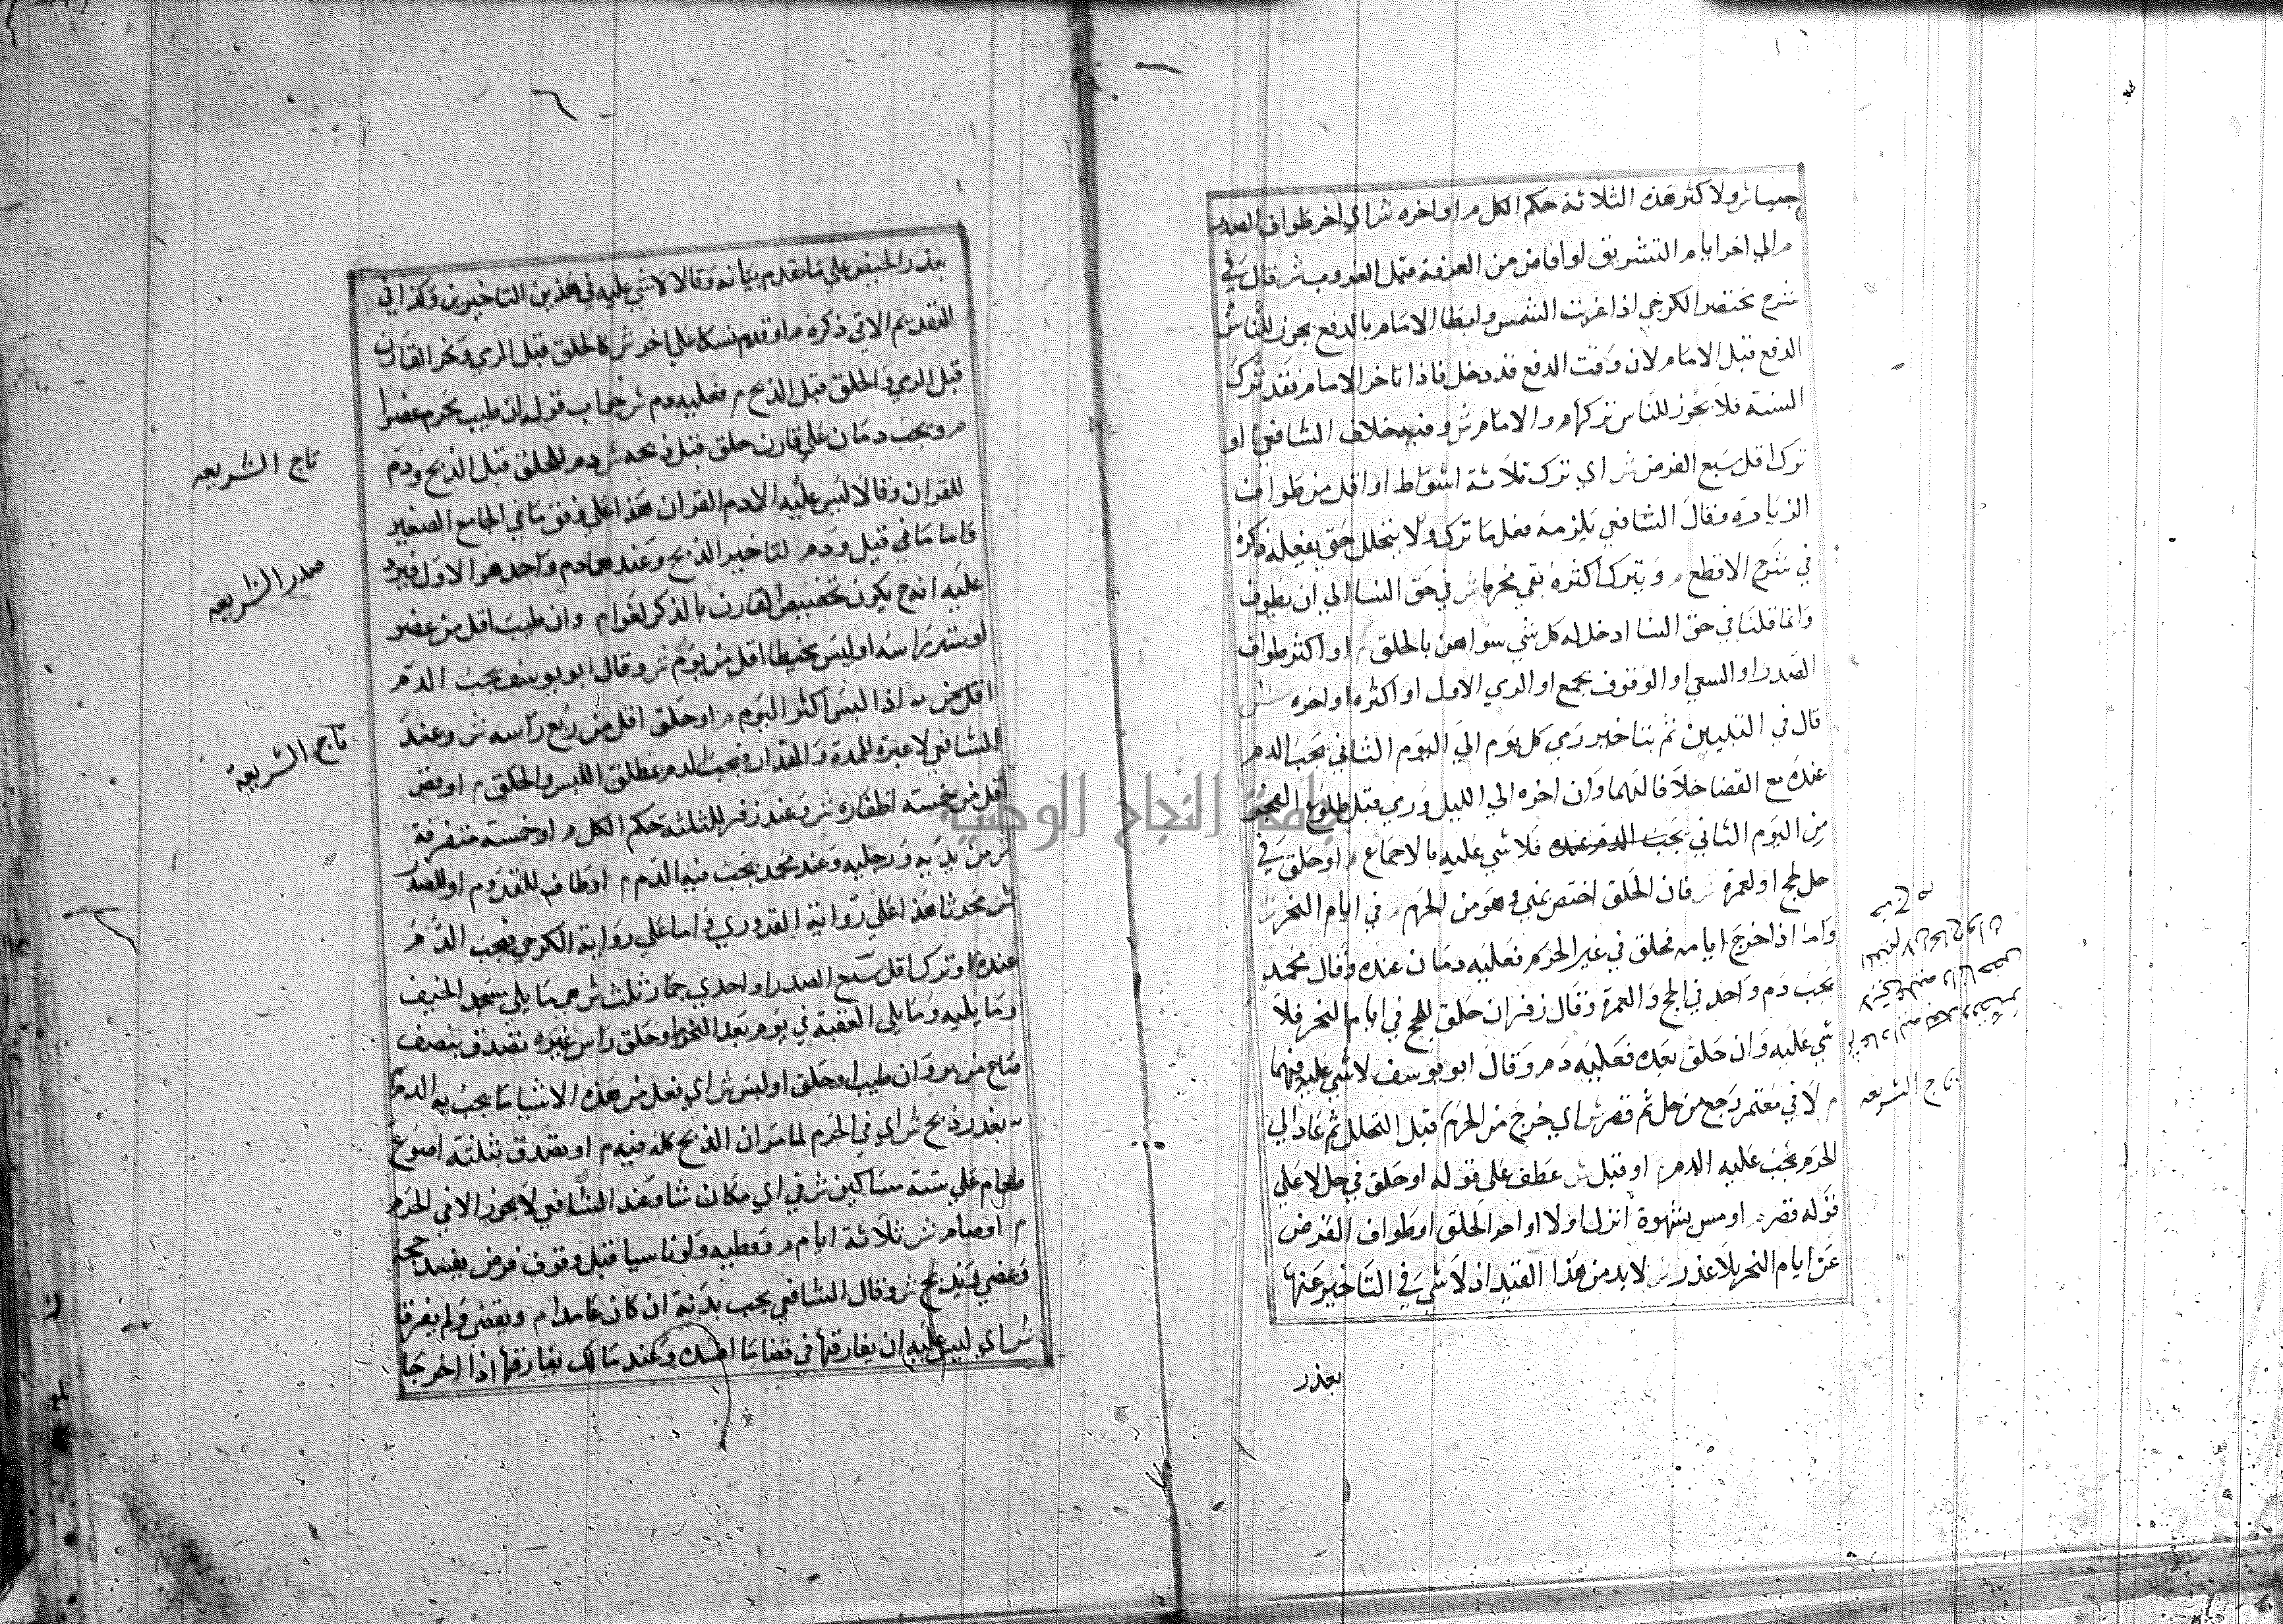 جميعا ش ولاكثر هذه الثلاثة حكم الكل م او اخره ش اي اخر طواف الصدر
م الي اخر ايام التشريق او افاض من العرفة قبل الغروب ش قال في
شرح مختصر الكرخي اذا غربت الشمس وابطا الامام بالدفع يجوز للناس
الدفع قبل الامام لان وقت الدفع قد دخل فاذا تاخر الامام فقد ترك
السنة فلا يجوز للناس تركها م والامام ش وفيه خلاف الشافعي م او
ترك اقل سبع الفرض ش اي ترك ثلاثة اشواط او اقل من طواف
الزيادة وقال الشافعي يلزمه فعل ما ترك ولا يتحلل حتي يفعله ذكره
في شرح الاقطع م وبترك اكثره بقي محرما ش في حق النسا الي ان يطوف
وانما قلنا في حق النسا اذ حل له كل شي سواهن بالحلق م او اكثر طواف
الصدر او السعي او الوقوف بجمع او الرمي الاول او اكثره او اخره ش
قال في التبيين ثم بتاخير رمي كل يوم الي اليوم الثاني يجب الدم
عنده مع القضا خلافا لهما وان اخره الي الليل ورمي قبل طلوع الفجر
من اليوم الثاني يجب الدم عنده فلا شي عليه بالاجماع م او حلق في
حل لحج او لعمرة ش فان الحلق اختص بمني وهو من الحرم م في ايام النحر ش
واما اذا خرج ايامه فحلق في غير الحرم فعليه دمان عنده وقال محمد
يجب دم واحد في الحج والعمرة وقال زفر ان حلق للحج في ايام النحر فلا
شي عليه وان حلق بعده فعليه دم وقال ابو يوسف لا شي عليه فيهما
م لا في معتمر رجع من حل ثم قصر ش اي خرج من الحرم قبل التحلل ثم عاد الي
الحرم يجب عليه الدم م او قبل ش عطف علي قوله او حلق في حل لا علي
قوله قصر م او مس بشهوة انزل اولا او اخر الحلق او طواف الفرض
عن ايام النحر بلا عذر ش لا بد من هذا القيد اذ لا شي في التاخير عنها
تاج الشريعه
بعذر
بعذر الحيض علي ما تقدم بيانه وقالا لا شي عليه في هذين التاخيرين وكذا في
التقديم الاتي ذكره م او قدم نسكا علي اخر ش كالحلق قبل الرمي ونحر القارن
قبل الرمي والحلق قبل الذبح م فعليه دم ش جواب قوله ان طيب محرم عضوا
م ويجب دمان علي قارن حلق قبل ذبحه ش دم للحلق قبل الذبح ودم
للقران وقالا ليس عليه الا دم القران هذا علي وفق ما في الجامع الصغير
واما ما في قيل ودم لتاخير الذبح وعندهما دم واحد هو الاول فيرد
عليه انه ح يكون تخصيص القارن بالذكر لغوا م وان طيب اقل من عضو
او ستر راسه او لبس مخيطا اقل من يوم ش وقال ابو يوسف يجب الدم
اقل من م اذا لبس اكثر اليوم م او حلق اقل من ربع راسه ش وعند
الشافعي لا عبرة للمدة والمقدار فيجب الدم بمطلق اللبس والحلق م او قص
اقل من خمسة اظفاره ش وعند زفر للثلثة حكم الكل م او خمسة متفرقة
ش من يديه ورجليه وعند محمد يجب فيه الدم م او طاف للقدوم او للصدر
ش محدثا هذا علي رواية القدوري واما علي رواية الكرخي فيجب الدم
عنده م او ترك اقل سبع الصدر او احدي جمار ثلث ش هي ما يلي مسجد الخيف
وما يليه وما يلي العقبة في يوم بعد النحر او حلق راس غيره تصدق بنصف
صاع من بر وان طيب او حلق او لبس ش اي فعل من هذه الاشيا ما يجب به الدم
م بعذر ذبح ش اي في الحرم لما مر ان الذبح كله فيه م او تصدق بثلثة اصوع
طعام علي ستة مساكين ش في اي مكان شا وعند الشافعي لا يجوز الا في الحرم
م او صام ش ثلاثة ايام م ووطيه ولو ناسيا قبل وقوف فرض يفسد حجه
ويمضي ويذبح ش وقال الشافعي يجب بدنة ان كان عامدا م ويقضي ولم يفرقا
ش اي ليس عليه ان يفارقها في قضا ما افسده وعند مالك يفارقها اذا اخرجا
تاج الشريعه
صدر الشريعه
تاج الشريعة